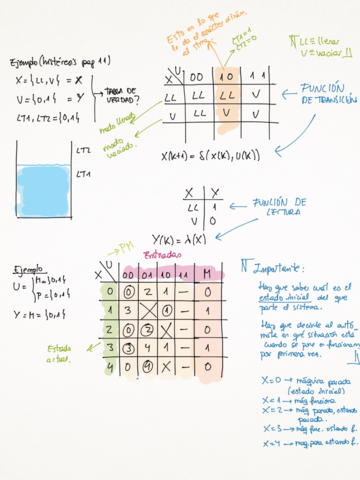 Esto es lo que
le da el carácter
al sistema
LT1=1
LT2=0
LL ≡ llenar
V ≡ vaciar
Ejemplo (histéresis pag 11)
X = {LL, V} = X
U = {0,1} = Y
LT1, LT2 = {0,1}
TABLA DE
VERDAD?
U
X
00 10 11
LL LL LL V
V LL V V
modo llenado
modo
vaciado
FUNCIÓN
DE TRANSICIÓN
X(k+1) = δ(X(k), U(k))
LT2
LT1
X Y
LL 1
V 0
FUNCIÓN DE
LECTURA
Y(k) = λ(X)
PM
Entradas
Ejemplo
U = M = {0,1}
P = {0,1}
Y = M = {0,1}
U
X
00 01 10 11 M
0 0 2 1 — 0
1 3 X 1 — 1
2 0 2 X — 0
3 3 4 1 — 1
4 0 4 X — 0
Estado
actual
Importante:
Hay que saber cual es el
estado inicial del que
parte el sistema.
Hay que decirle al autó
mata en que situación está
cuando se pone a funcionar
por primera vez.
X=0 → máquina parada
(estado inicial)
X=1 → máq funciona
X=2 → máq parada, estando
parada.
X=3 → máq func. estando f.
X=4 → maq para estando f.